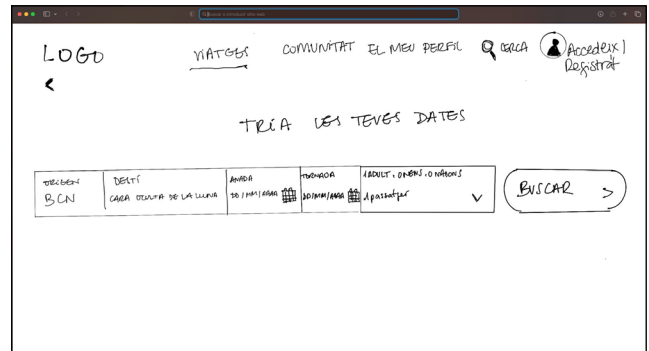 LOGO
VIATGES COMUNITAT EL MEU PERFIL CERCA Accedeix |
Registra't
TRIA LES TEVES DATES
ORIGEN DESTÍ ANADA TORNADA 1 ADULT, 0 NENS, 0 NADONS
BCN CARA OCULTA DE LA LLUNA DD/MM/AAAA DD/MM/AAAA 1 passatger
BUSCAR